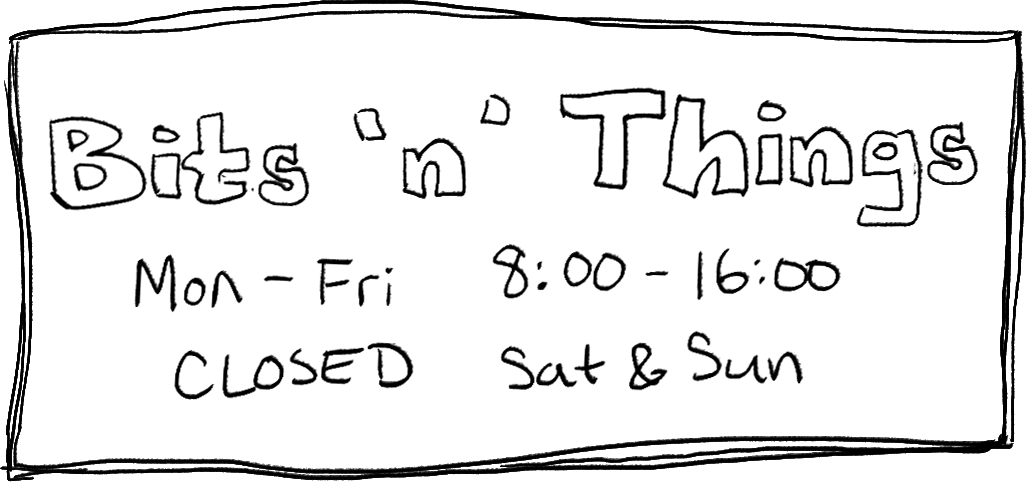 Bits 'n' Things
Mon - Fri 8:00 - 16:00
CLOSED Sat & Sun